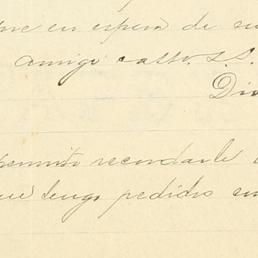 en espera de su
amigo afftto. S.S.
permito recordarle
que tengo pedidos en